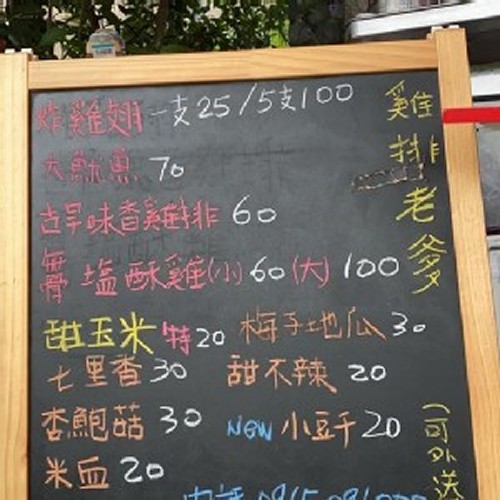 炸雞翅一支25/5支100
大魷魚 70
古早味香雞排 60
無骨塩酥雞(小)60(大)100
甜玉米 特20 梅子地瓜30
七里香30 甜不辣 20
杏鮑菇 30 NEW 小豆干20
米血 20
電話
雞排老爹
(可外送